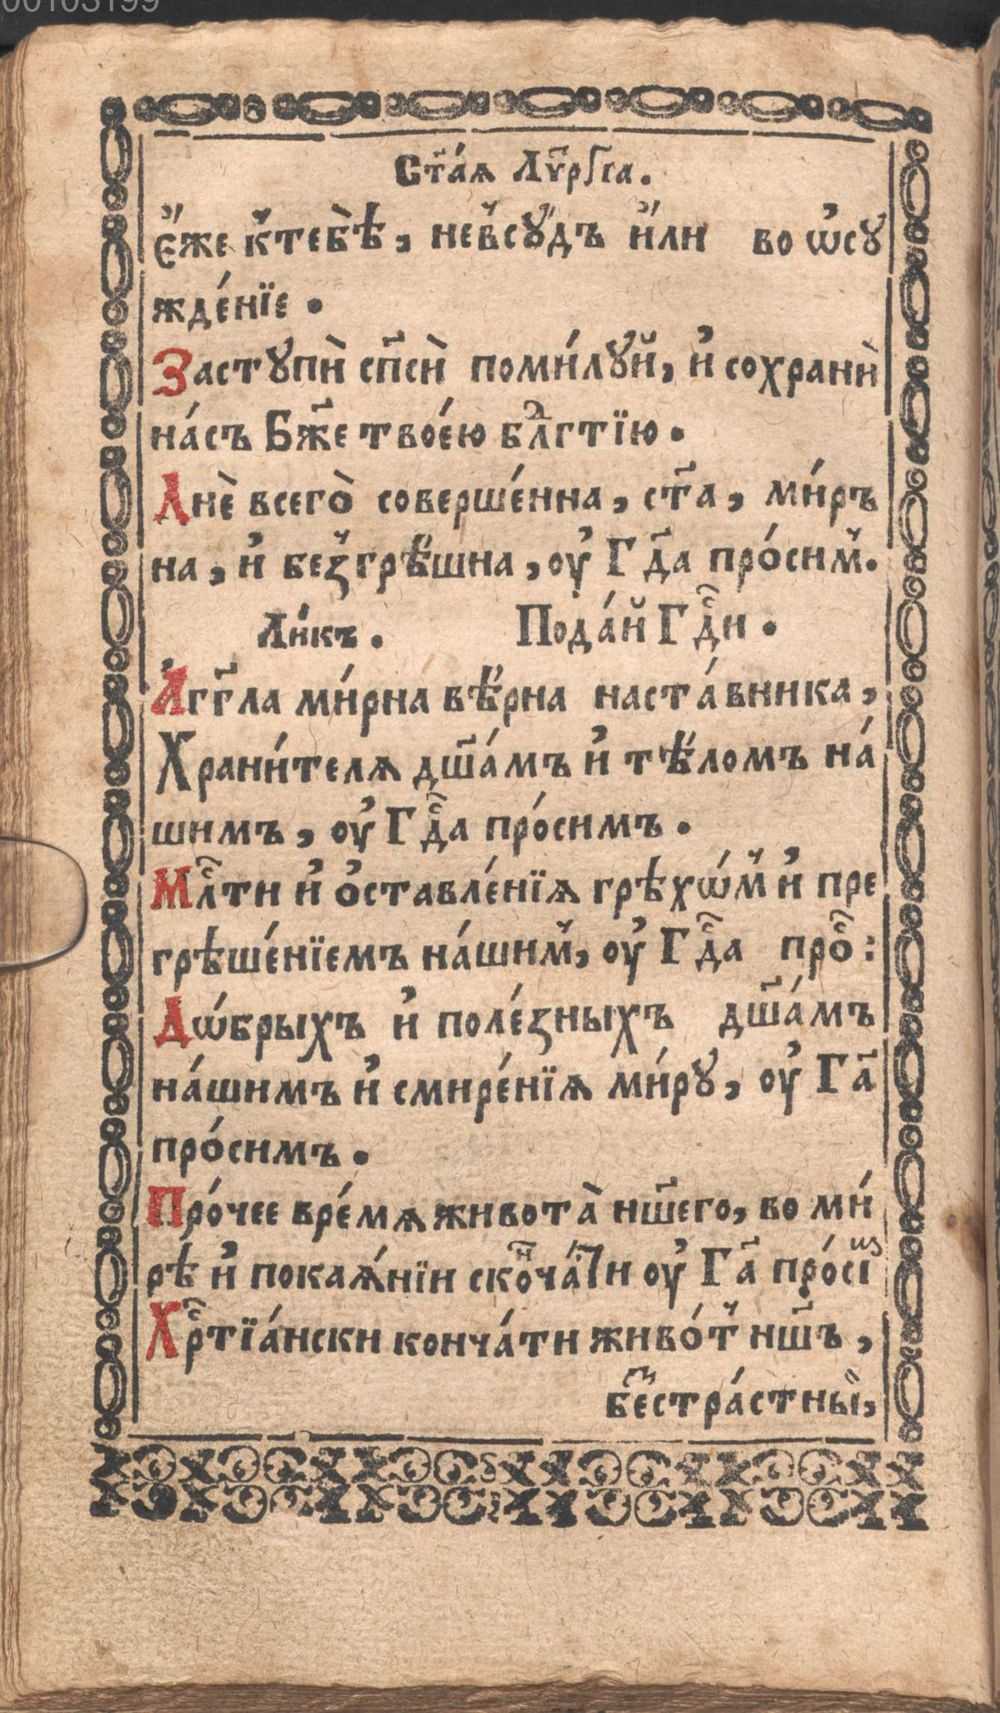 00103199
Ст҃а́ѧ Лѵ҃ргїа.
є҆́же к̾тебѣ̀, нев̾сꙋ́дъ и҆́ли во ѡ҆сꙋ
жде́нїе.
Застꙋпѝ сп҃сѝ поми́лꙋй, и҆ сохранѝ
на́съ Бж҃е твое́ю бл҃гтїю.
Днѐ всего̀ соверше́нна, ст҃а, ми́рʼ
на, и҆ без̾грѣ́шна, оу҆ Гдⷭ҇а про́сим̾.
Ли́къ. Пода́й Гдⷭ҇и.
А҆́гг҃ла ми́рна вѣ́рна наста́вника,
Храни́телѧ дш҃а́мъ и҆ тѣ́ломъ на́
шимъ, оу҆ Гдⷭ҇а про́симъ.
Млⷭ҇ти и҆ ѻ҆ставле́нїѧ грѣхѡ́м̾ и҆ пре
грѣше́нїемъ на́шим̾, оу҆ Гдⷭ҇а проⷭ҇:
Дѡ́брыхъ и҆ поле́зныхъ дш҃а́мъ
на́шимъ и҆ смире́нїѧ ми́рꙋ, оу҆ Га҃
про́симъ.
Про́чее вре́мѧ живота̀ нш҃его, во ми́
рѣ и҆ покаѧ́нїи скоⷩ҇ча́ти оу҆ Га҃ про́сі
Хрⷭ҇тїа́нски конча́ти живо́т̾ нш҃ъ,
бе́страстны̀й,